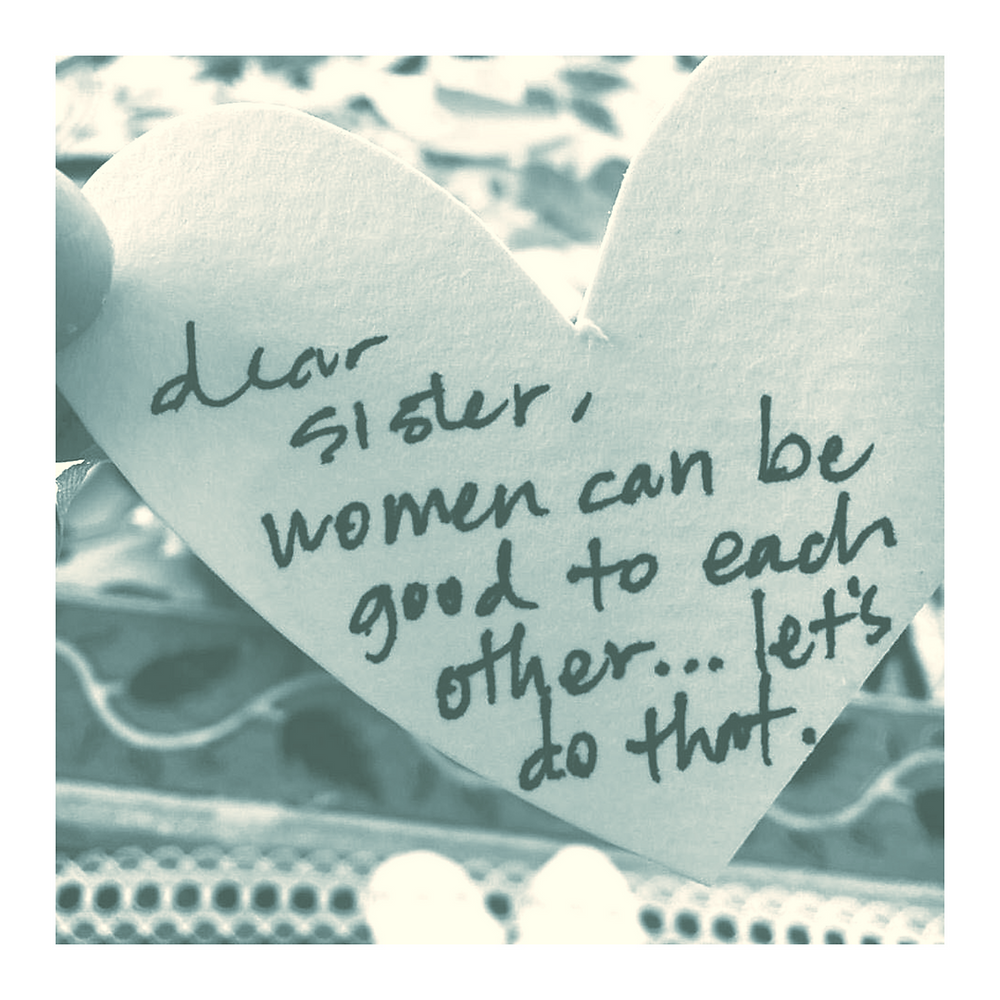 dear
sister,
women can be
good to each
other... let's
do that.